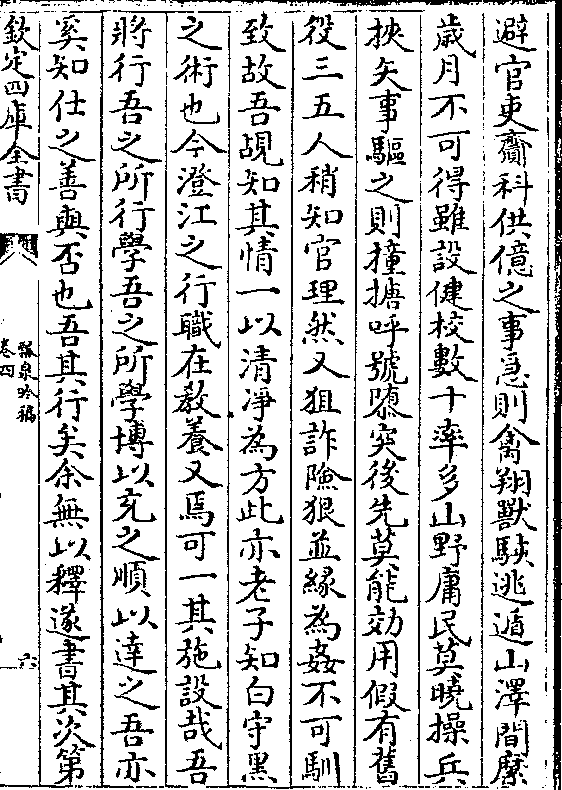 避官吏齎科供億之事急則禽翔獸駭逃遁山澤間縻
歲月不可得雖設健校數十率多山野庸民莫曉操兵
挾矢事驅之則撞搪呼號隳突後先莫能効用假有舊
役三五人稍知官理然又狙詐險狠並緣為姦不可馴
致故吾覘知其情一以清凈為方此亦老子知白守黑
之術也今澄江之行職在教養又焉可一其施設哉吾
將行吾之所行學吾之所學博以充之順以達之吾亦
奚知仕之善與否也吾其行矣余無以釋遂書其次第
欽定四庫全書
瓢泉吟稿
卷四
六